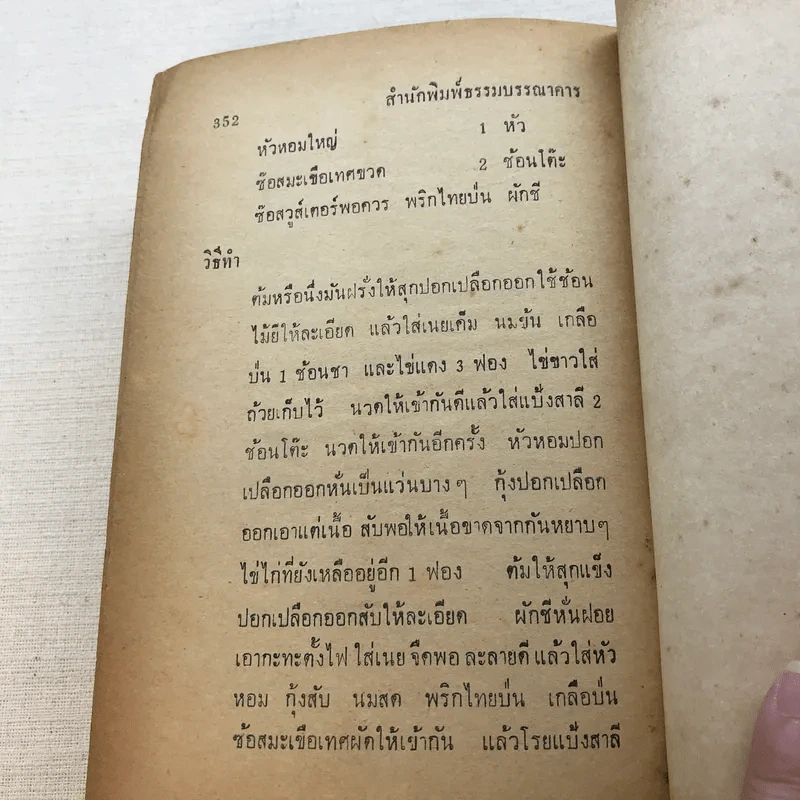 352
สำนักพิมพ์ธรรมบรรณาคาร
หัวหอมใหญ่ 1 หัว
ซ๊อสมะเขือเทศขวด 2 ช้อนโต๊ะ
ซ๊อสวูส์เตอร์พอควร พริกไทยป่น ผักชี
วิธีทำ
ต้มหรือนึ่งมันฝรั่งให้สุกปอกเปลือกออกใช้ช้อน
ไม้ยีให้ละเอียด แล้วใส่เนยเค็ม นมข้น เกลือ
ป่น 1 ช้อนชา และไข่แดง 3 ฟอง ไข่ขาวใส่
ถ้วยเก็บไว้ นวดให้เข้ากันดีแล้วใส่แป้งสาลี 2
ช้อนโต๊ะ นวดให้เข้ากันอีกครั้ง หัวหอมปอก
เปลือกออกหั่นเป็นแว่นบาง ๆ กุ้งปอกเปลือก
ออกเอาแต่เนื้อ สับพอให้เนื้อขาดจากกันหยาบๆ
ไข่ไก่ที่ยังเหลืออยู่อีก 1 ฟอง ต้มให้สุกแข็ง
ปอกเปลือกออกสับให้ละเอียด ผักชีหั่นฝอย
เอากะทะตั้งไฟ ใส่เนย จืดพอ ละลายดี แล้วใส่หัว
หอม กุ้งสับ นมสด พริกไทยป่น เกลือป่น
ซ้อสมะเขือเทศผัดให้เข้ากัน แล้วโรยแป้งสาลี